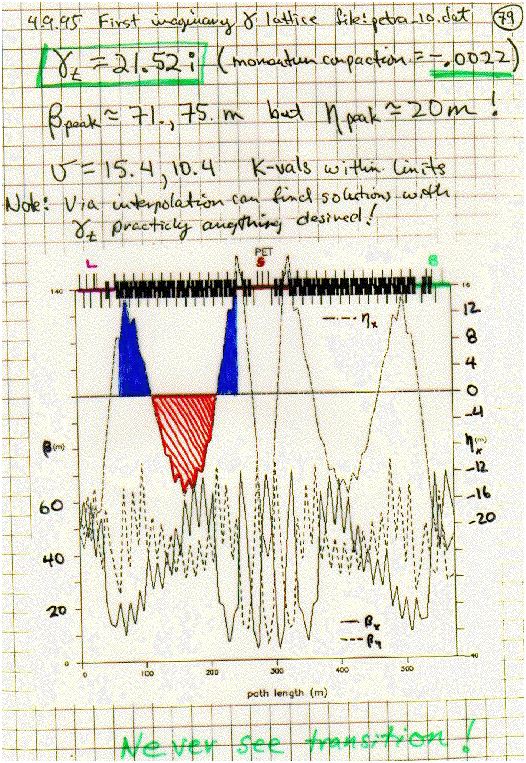 4.9.95 First imaginary γ lattice file: petra_10.dat 79
γt = 21.52 i (momentum compaction = -.0022)
βpeak ≃ 71., 75. m but ηpeak ≃ 20 m !
ν = 15.4, 10.4 K-vals within limits
Note: Via interpolation can find solutions with
γt practicly anything desired!
PET
L S S
140 16
ηx
12
8
4
0
-4
β (m) ηx (m)
-12
-16
60 -20
40
20
βx
βy
0 -40
0 100 200 300 400 500
path length (m)
Never see transition!